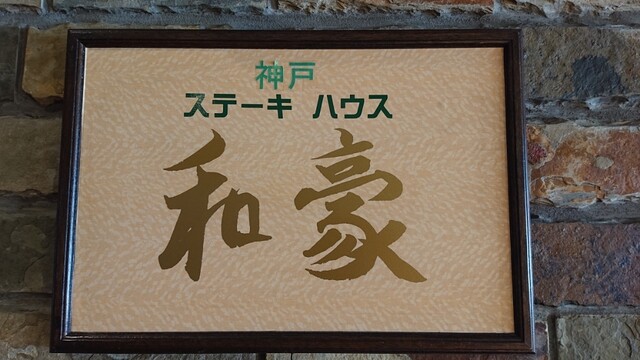 神戸
ステーキ ハウス
和豪